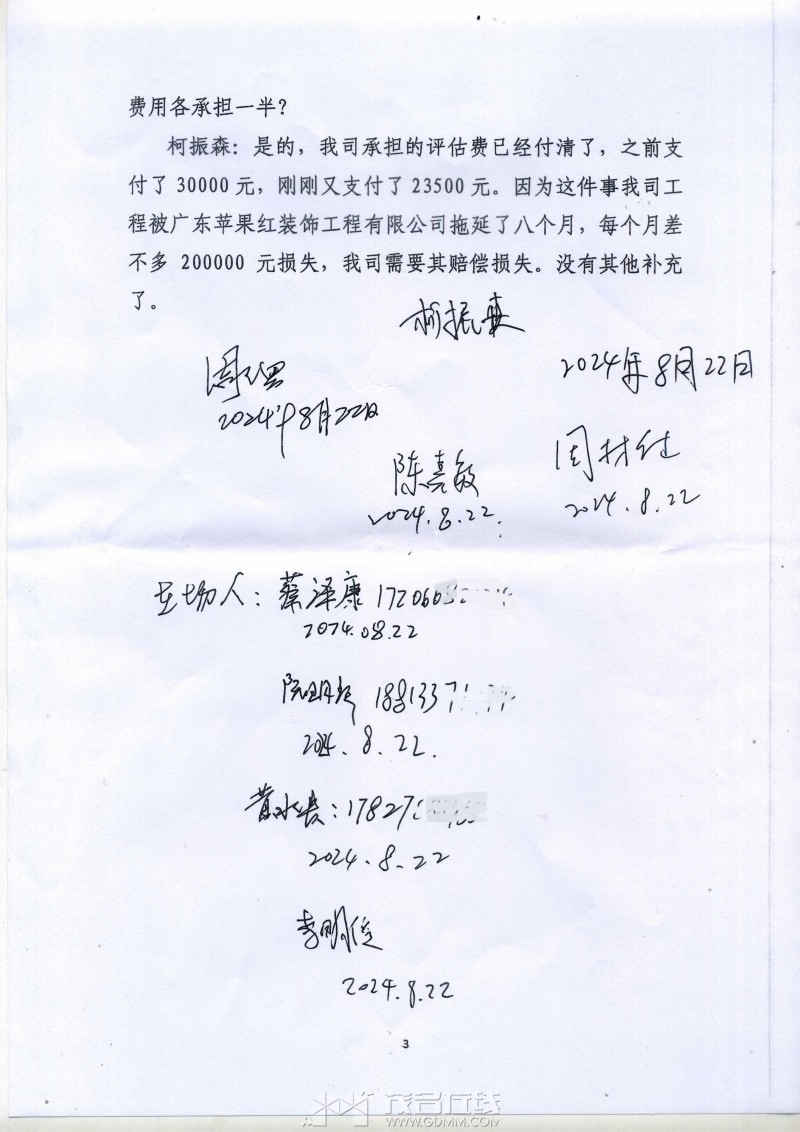 费用各承担一半？
柯振森：是的，我司承担的评估费已经付清了，之前支
付了 30000 元，刚刚又支付了 23500 元。因为这件事我司工
程被广东苹果红装饰工程有限公司拖延了八个月，每个月差
不多 200000 元损失，我司需要其赔偿损失。没有其他补充
了。
柯振森
2024年8月22日
2024年8月22日
陈喜敏
2024.8.22
周材仕
2024.8.22
在场人：蔡泽康 1720605
2024.08.22
阮明 1881337
2024.8.22.
黄水长：17827
2024.8.22
李明俊
2024.8.22
3
茂名在线
WWW.GDMM.COM